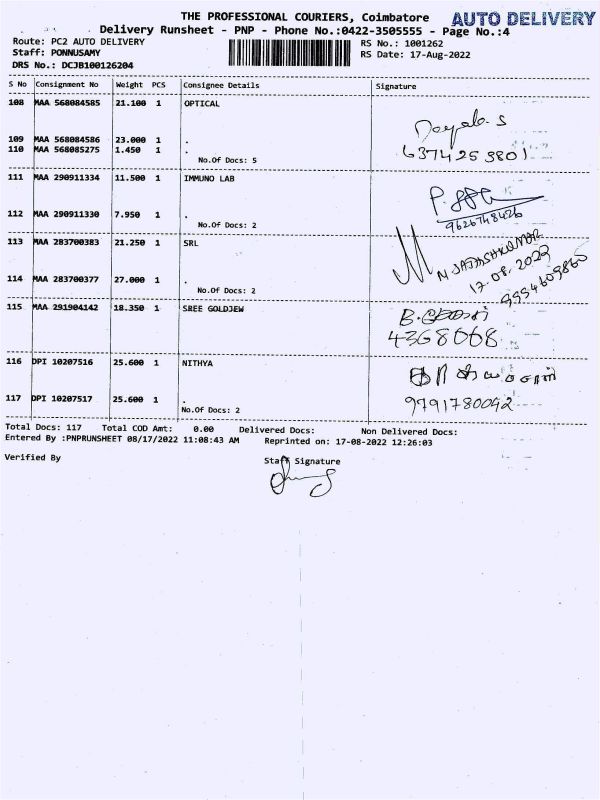 THE PROFESSIONAL COURIERS, Coimbatore AUTO DELIVERY
Delivery Runsheet - PNP - Phone No.:0422-3505555 - Page No.:4
Route: PC2 AUTO DELIVERY RS No.: 1001262
Staff: PONNUSAMY RS Date: 17-Aug-2022
DRS No.: DCJB100126204
S No Consignment No Weight PCS Consignee Details Signature
108 MAA 568084585 21.100 1 OPTICAL
109 MAA 568084586 23.000 1 .
110 MAA 568085275 1.450 1 .
No.Of Docs: 5
6374253801
111 MAA 290911334 11.500 1 IMMUNO LAB
112 MAA 290911330 7.950 1 .
No.Of Docs: 2
9626748426
113 MAA 283700383 21.250 1 SRL
17.08.2022
9994609860
114 MAA 283700377 27.000 1 .
No.Of Docs: 2
115 MAA 291904142 18.350 1 SREE GOLDJEW
4368068
116 DPI 10207516 25.600 1 NITHYA
117 DPI 10207517 25.600 1 .
9791780042
No.Of Docs: 2
Total Docs: 117 Total COD Amt: 0.00 Delivered Docs: Non Delivered Docs:
Entered By :PNPRUNSHEET 08/17/2022 11:08:43 AM Reprinted on: 17-08-2022 12:26:03
Verified By Staff Signature